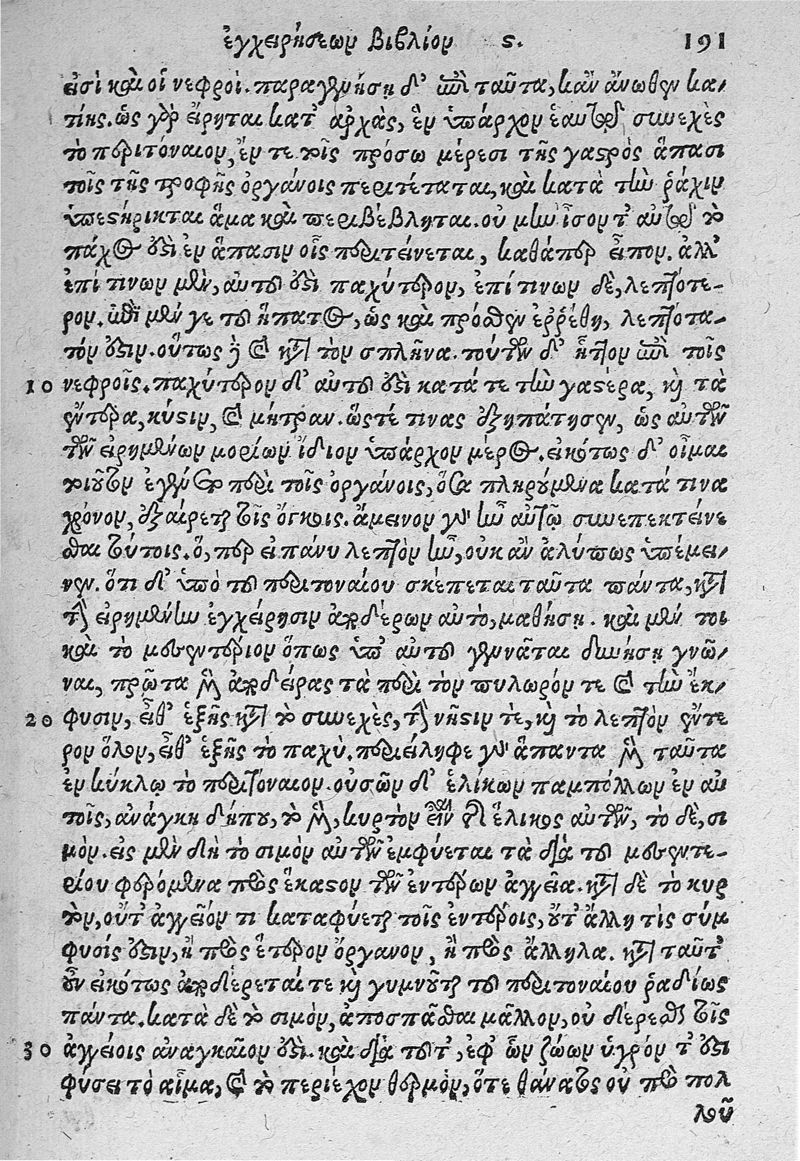 ἐγχειρήσεων Βιβλίον ϛ. 191
εἰσὶ καὶ οἱ νεφροί. παραγενήσῃ δ' ἐπὶ ταῦτα, κᾂν ἄνωθεν κα-
τίῃς. ὡς γὰρ εἴρηται κατ' ἀρχὰς, ἓν ὑπάρχον ἑαυτῷ συνεχὲς
τὸ περιτόναιον, ἔν τε τοῖς πρόσω μέρεσι τῆς γαστρὸς ἅπασι
τοῖς τῆς τροφῆς ὀργάνοις περιτέταται, καὶ κατὰ τὴν ῥάχιν
ὑπεστήρικται ἅμα καὶ περιβέβληται. οὐ μὴν ἴσον τ' αὐτῷ τὸ
πάχος ἐστὶ ἐν ἅπασιν οἷς περιτείνεται, καθάπερ εἶπον. ἀλλ'
ἐπί τινων μὲν, αὐτοῦ ἐστὶ παχύτερον, ἐπί τινων δὲ, λεπτότε-
ρον. ἐπὶ μέν γε τοῦ ἥπατος, ὡς καὶ πρόσθεν ἐῤῥέθη, λεπτότα-
τόν ἐστιν. οὕτως ἢ καὶ κατὰ τὸν σπλῆνα. τούτων δ' ἧττον ἐπὶ τοῖς
10 νεφροῖς. παχύτερον δ' αὐτοῦ ἐστὶ κατά τε τὴν γαστέρα, καὶ τὰ
ἔντερα, κύστιν, καὶ μήτραν. ὥστέ τινας ἐξηπάτησεν, ὡς αὐτῶν
τῶν εἰρημένων μορίων ἴδιον ὑπάρχον μέρος. εἰκότως δ' οἶμαι
τοιοῦτον ἐγένετο περὶ τοῖς ὀργάνοις, ὅσα πληρούμενα κατά τινα
χρόνον, ἐξαίρεται τοῖς ὄγκοις. ἄμεινον γὰρ ἦν αὐτῷ συνεπεκτείνε-
σθαι τούτοις. ὅ, περ εἰ πάνυ λεπτὸν ἦν, οὐκ ἂν ἀλύπως ὑπέμει-
νεν. ὅτι δ' ὑπὸ τοῦ περιτοναίου σκέπεται ταῦτα πάντα, κατὰ
τὴν εἰρημένην ἐγχείρησιν ἀποδέρων αὐτὸ, μαθήσῃ. καὶ μέν τοι
καὶ τὸ μεσεντέριον ὅπως ὑπ' αὐτοῦ γεννᾶται δυνήσῃ γνῶ-
ναι, πρῶτα μὲν ἀποδείρας τὰ περὶ τὸν πυλωρόν τε καὶ τὴν ἔκ-
20 φυσιν, εἶθ' ἑξῆς κατὰ τὸ συνεχὲς, τὴν νῆστιν τὲ, καὶ τὸ λεπτὸν ἔντε
ρον ὅλον, εἶθ' ἑξῆς τὸ παχύ. περιείληφε γὰρ ἅπαντα μὲν ταῦτα
ἐν κύκλῳ τὸ περιτόναιον. οὐσῶν δ' ἑλίκων παμπόλλων ἐν αὐ
τοῖς, ἀνάγκη δήπου, τὸ μὲν, κυρτὸν εἶναι τῆς ἕλικος αὐτῶν, τὸ δὲ, σι
μόν. εἰς μὲν δὴ τὸ σιμὸν αὐτῶν ἐμφύεται τὰ διὰ τοῦ μεσεντε-
ρίου φερόμενα πρὸς ἕκαστον τῶν ἐντέρων ἀγγεῖα. κατὰ δὲ τὸ κυρ
τὸν, οὔτ' ἀγγεῖόν τι καταφύεται τοῖς ἐντέροις, οὔτ' ἄλλη τὶς σύμ
φυσίς ἐστιν, ἢ πρὸς ἕτερον ὄργανον, ἢ πρὸς ἄλληλα. κατὰ ταῦτ'
οὖν εἰκότως ἀποδέρεταί τε καὶ γυμνοῦται τοῦ περιτοναίου ῥαδίως
πάντα. κατὰ δὲ τὸ σιμὸν, ἀποσπᾶσθαι μᾶλλον, οὐ δέρεσθαι τοῖς
30 ἀγγείοις ἀναγκαῖον ἐστὶ. καὶ διὰ τοῦτ', ἐφ' ὧν ζώων ὑγρόν τ' ἐστὶ
φύσει τὸ αἷμα, καὶ τὸ περιέχον θερμὸν, ὅτε θάνατος οὐ πρὸ πολ
λοῦ